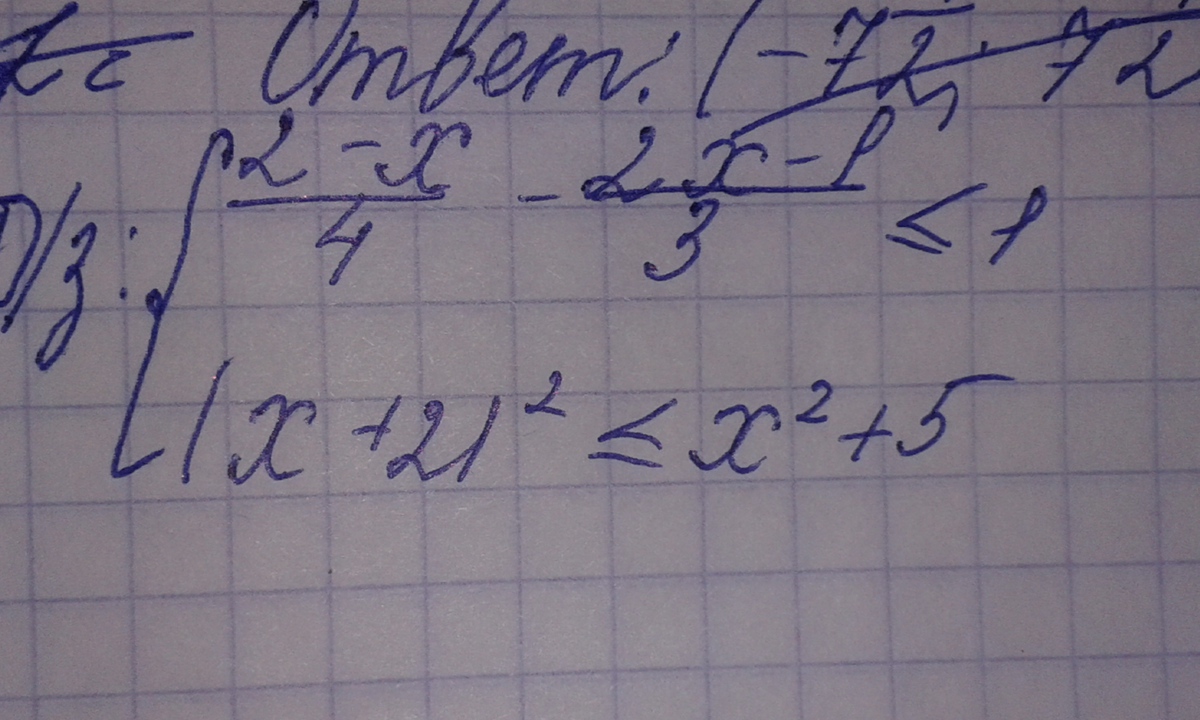 Ответ: (-72; 72
Д/з: { (2-x)/4 - (2x-1)/3 ≤ 1
(x+2)² ≤ x²+5